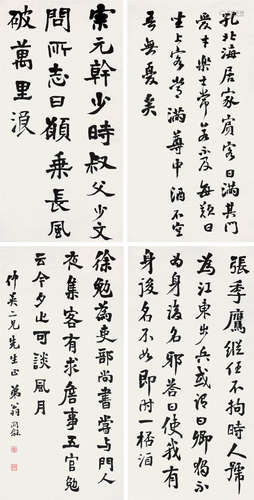 孔北海居家賓客日滿其門
愛才樂士常若不及每歎曰
坐上客常滿尊中酒不空
吾無憂矣
宗元幹少時叔父少文
問所志曰願乘長風
破萬里浪
張季鷹縱任不拘時人號
為江東步兵或謂曰卿獨不
為身後名耶答曰使我有
身後名不如即時一桮酒
徐勉為吏部尚書嘗與門人
夜集客有求詹事五官勉
云今夕止可談風月
仲英二兄先生正 弟翁同龢